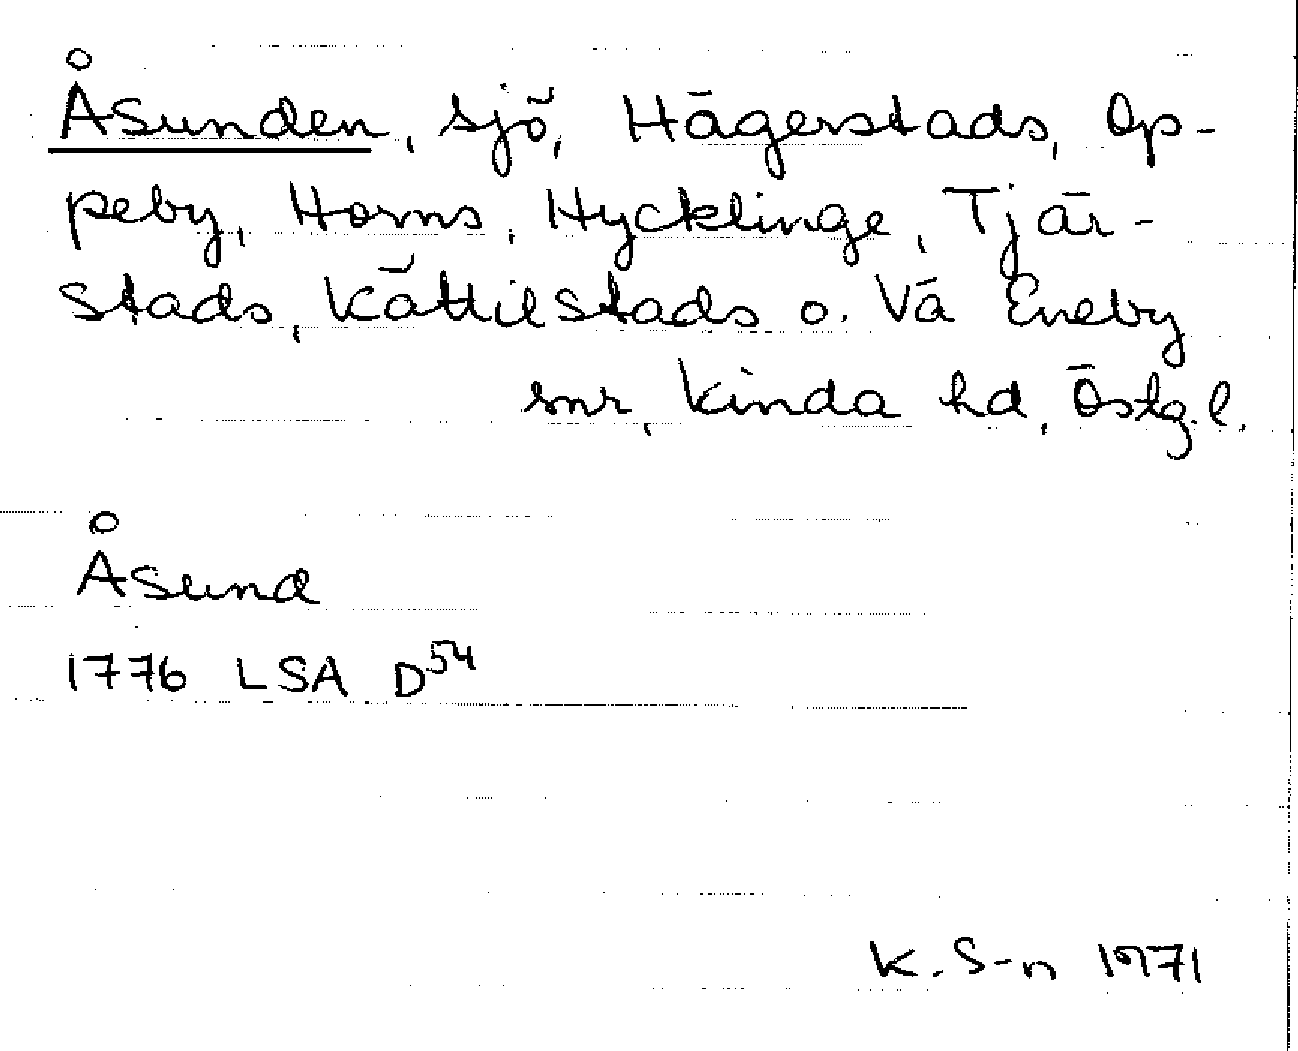 Åsunden, sjö, Hägerstads, Op-
peby, Horns, Hycklinge, Tjär-
stads, Kättilstads o. Vä Eneby
snr, Kinda hd, Östg.l.
Åsund
1776 LSA D54
K. S-n 1971